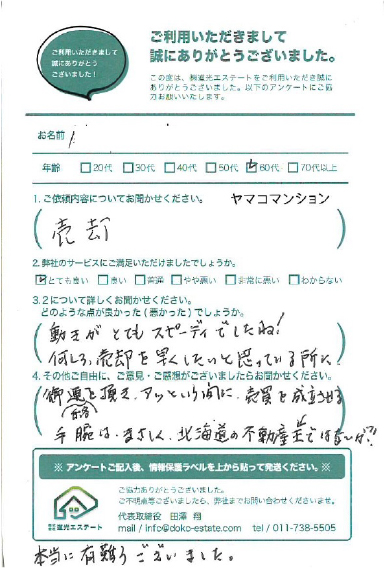 ご利用いただきまして
誠にありがとう
ございました！
ご利用いただきまして
誠にありがとうございました。
この度は、㈱道光エステートをご利用いただき誠に
ありがとうございました。以下のアンケートにご協
力お願いいたします。
お名前
年齢 □20代 □30代 □40代 □50代 ☑60代 □70代以上
1.ご依頼内容についてお聞かせください。 ヤマコマンション
売却
2.弊社のサービスにご満足いただけましたでしょうか。
☑とても良い □良い □普通 □やや悪い □非常に悪い □わからない
3.2について詳しくお聞かせください。
どのような点が良かった(悪かった)でしょうか。
動きがとてもスピーディでしたね!
何しろ、売却を早くしたいと思っている所に
4.その他ご自由に、ご意見・ご感想がございましたらお聞かせください。
御連絡を頂き、アッという間に、売買を成立させる
手腕は、まさしく、北海道の不動産
※ アンケートご記入後、情報保護ラベルを上から貼って発送ください。※
株式会社 道光エステート
ご協力ありがとうございました。
ご不明点等ございましたら、弊社までお問い合わせくださいませ。
代表取締役 田澤 翔
mail / info@doko-estate.com tel / 011-738-5505
本当に有難うございました。